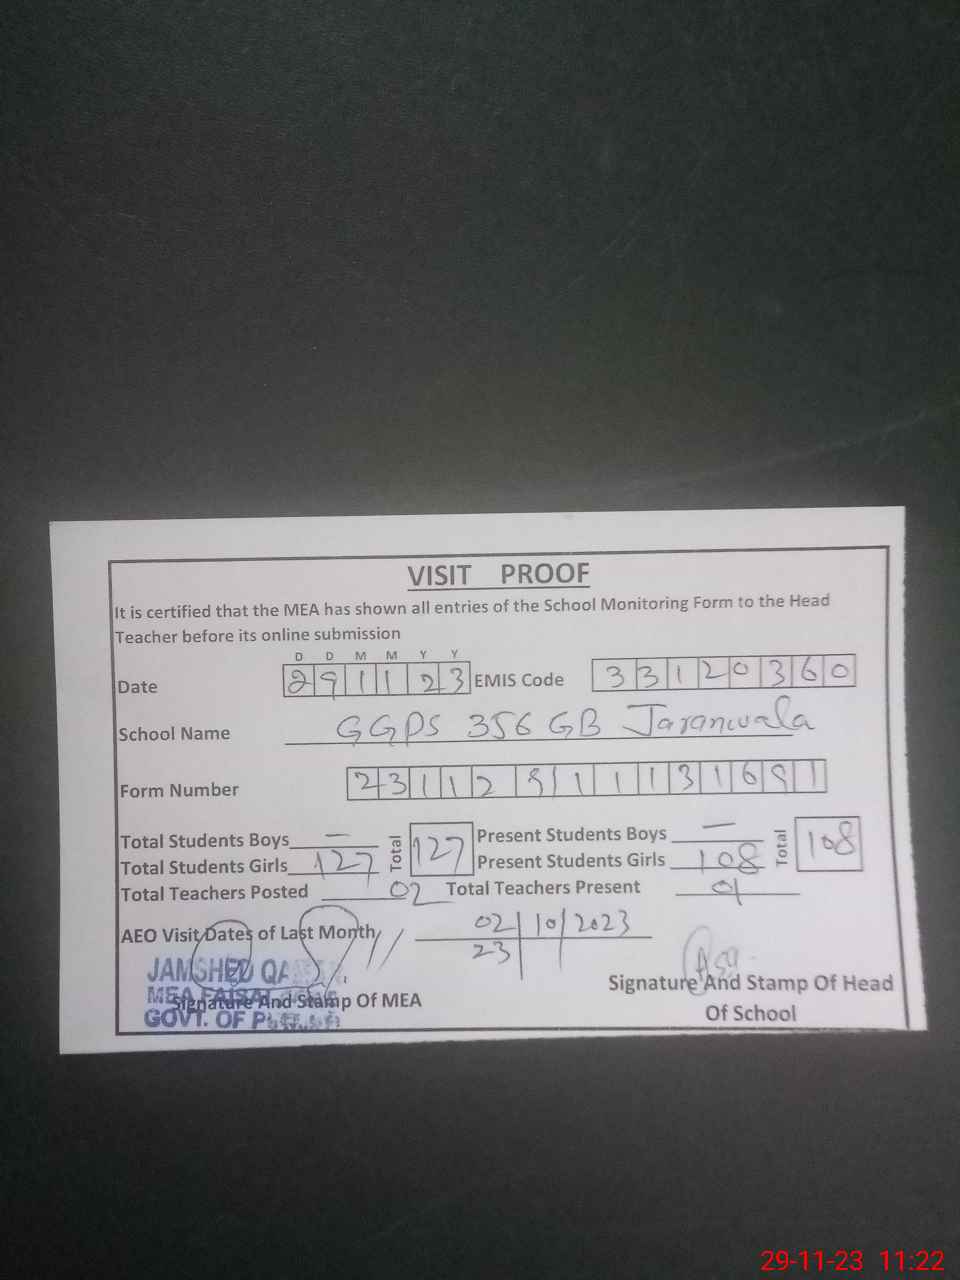 VISIT PROOF
It is certified that the MEA has shown all entries of the School Monitoring Form to the Head
Teacher before its online submission
D D M M Y Y
Date 29 11 23 EMIS Code 33120360
School Name GGPS 356 GB Jaranwala
Form Number
Total Students Boys — Total 127 Present Students Boys — Total 108
Total Students Girls 127 Present Students Girls 108
Total Teachers Posted 02 Total Teachers Present 01
AEO Visit Dates of Last Month 02 10 2023
23
JAMSHED
MEA
GOVT. OF
Signature And Stamp Of MEA
Signature And Stamp Of Head
Of School
29-11-23 11:22